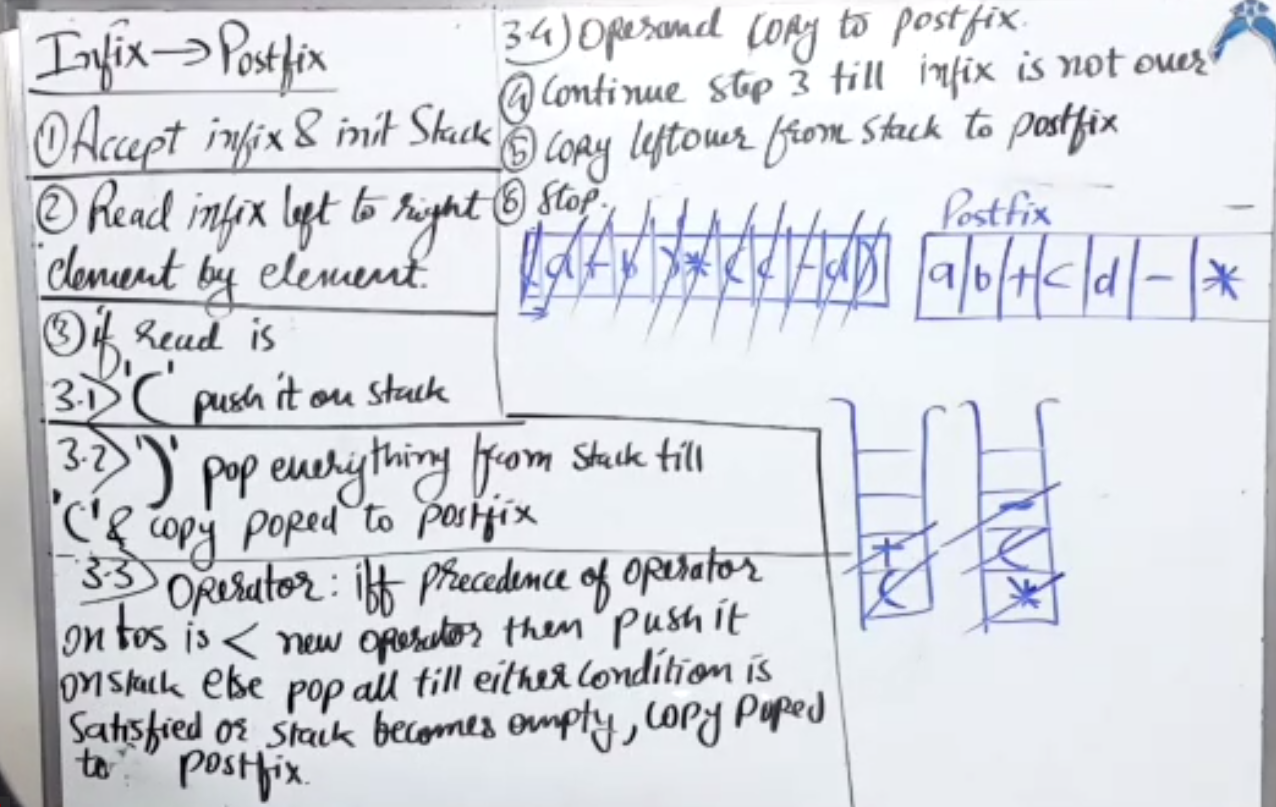 Infix → Postfix
① Accept infix & init Stack
② Read infix left to right
element by element.
③ if read is
3.1> '(' push it on stack
3.2> ')' pop everything from stack till
'(' & copy poped to postfix
3.3> Operator: iff precedence of operator
on tos is < new operator then push it
on stack else pop all till either condition is
satisfied or stack becomes empty, copy poped
to postfix.
3.4) Operand copy to postfix.
④ Continue step 3 till infix is not over
⑤ copy leftover from stack to postfix
⑥ Stop.
( a + b ) * ( c - d )
Postfix
a b + c d - *
+
(
-
(
*